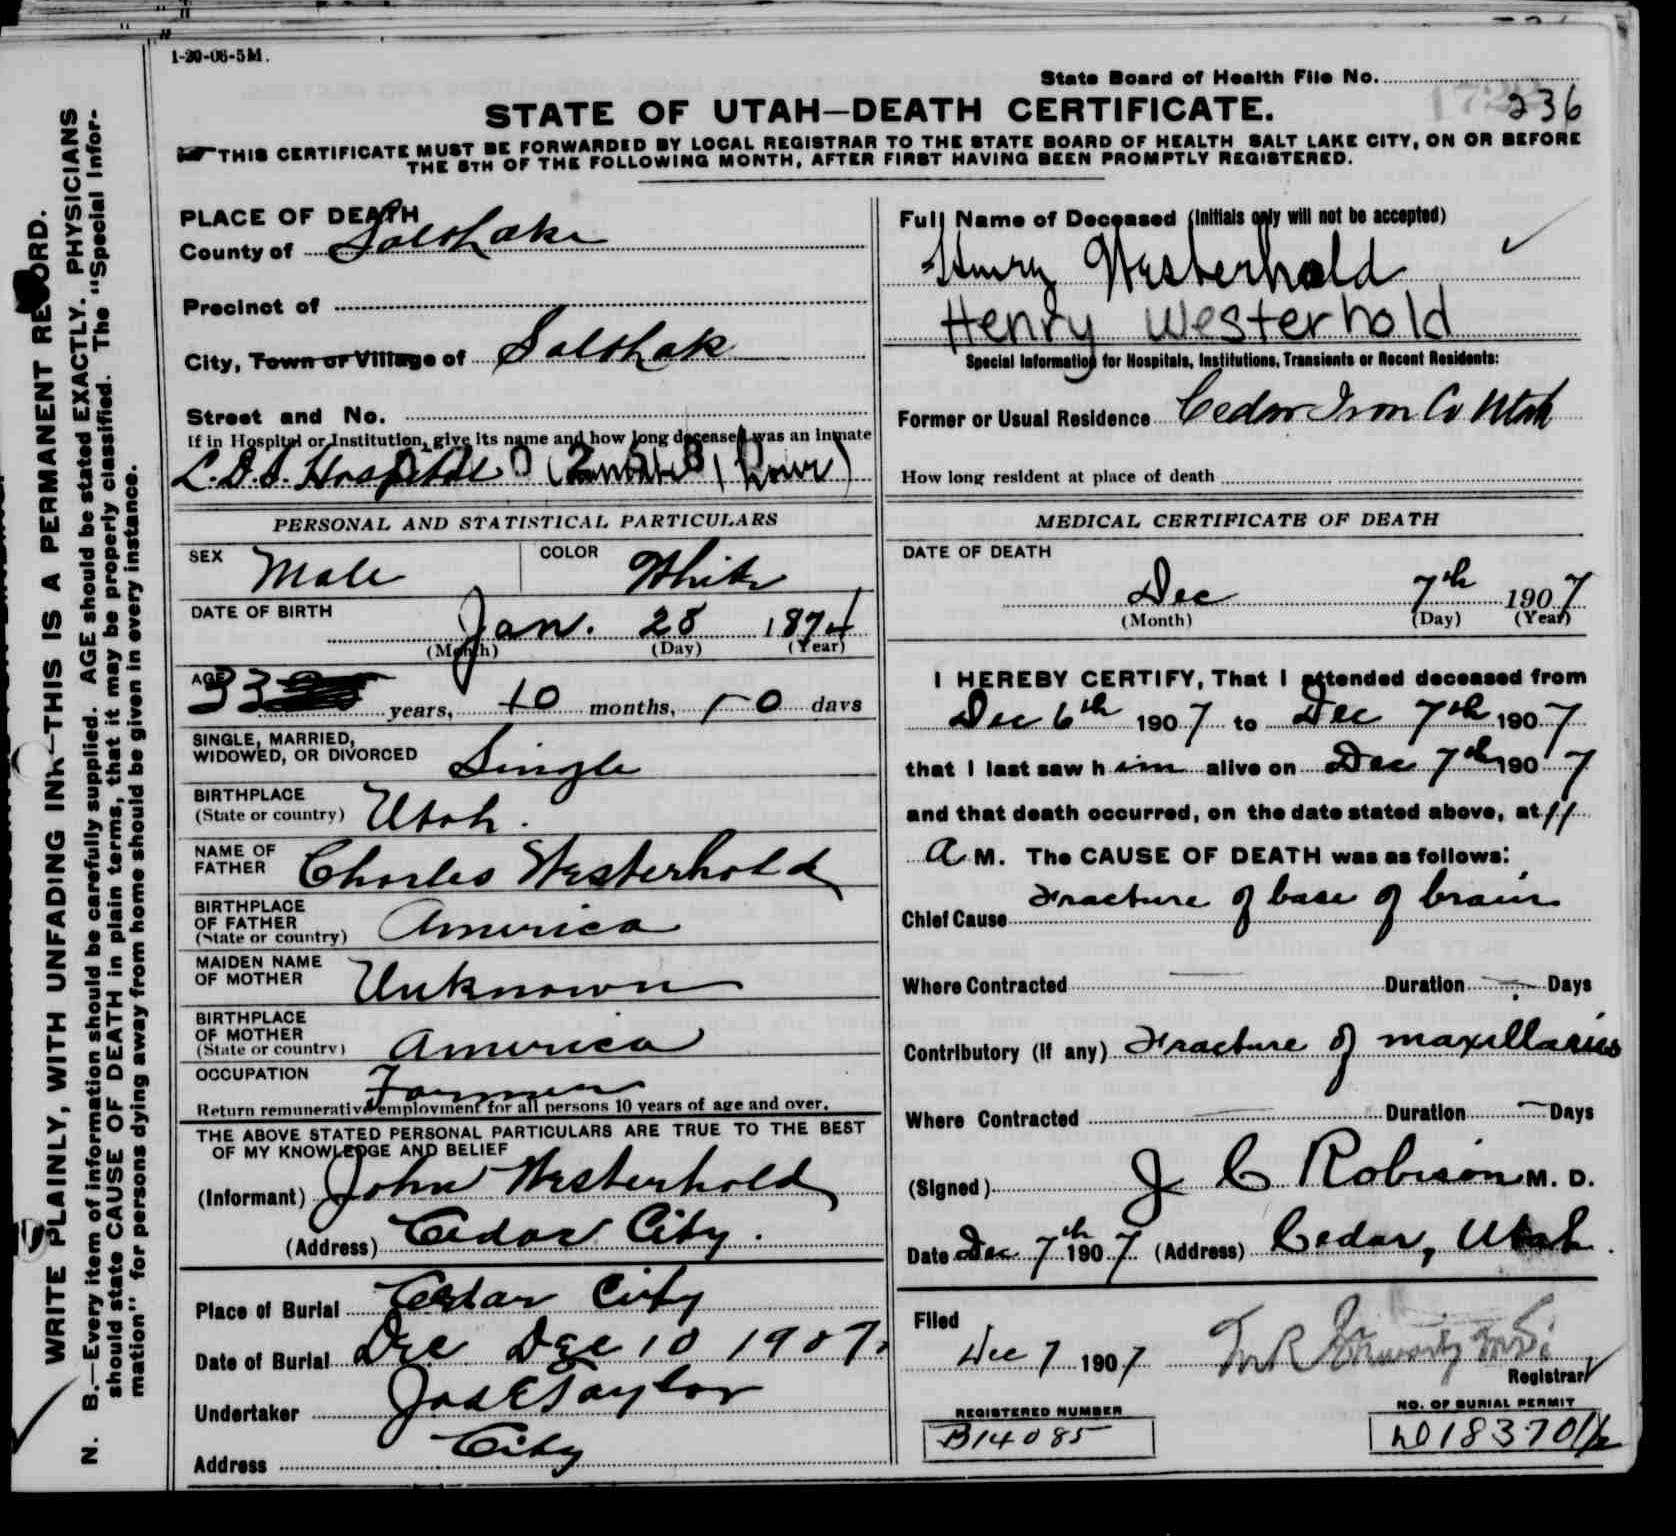 1-20-06-5M.
State Board of Health File No. 236
STATE OF UTAH—DEATH CERTIFICATE.
THIS CERTIFICATE MUST BE FORWARDED BY LOCAL REGISTRAR TO THE STATE BOARD OF HEALTH SALT LAKE CITY, ON OR BEFORE
THE 5TH OF THE FOLLOWING MONTH, AFTER FIRST HAVING BEEN PROMPTLY REGISTERED.
WRITE PLAINLY, WITH UNFADING INK—THIS IS A PERMANENT RECORD.
N. B.—Every item of information should be carefully supplied. AGE should be stated EXACTLY. PHYSICIANS
should state CAUSE OF DEATH in plain terms, that it may be properly classified. The "Special Infor-
mation" for persons dying away from home should be given in every instance.
PLACE OF DEATH
County of Salt Lake
Precinct of
City, Town or Village of Salt Lak
Street and No.
If in Hospital or Institution, give its name and how long deceased was an inmate
L.D.S. Hospital (Inmate 1 hour)
PERSONAL AND STATISTICAL PARTICULARS
SEX Male COLOR White
DATE OF BIRTH
Jan. 28 1874
(Month) (Day) (Year)
AGE
33 years, 10 months, 10 days
SINGLE, MARRIED,
WIDOWED, OR DIVORCED Single
BIRTHPLACE
(State or country) Utah.
NAME OF
FATHER Charles Westerhold
BIRTHPLACE
OF FATHER
(State or country) America
MAIDEN NAME
OF MOTHER Unknown
BIRTHPLACE
OF MOTHER
(State or country) America
OCCUPATION Farmer
Return remunerative employment for all persons 10 years of age and over.
THE ABOVE STATED PERSONAL PARTICULARS ARE TRUE TO THE BEST
OF MY KNOWLEDGE AND BELIEF
(Informant) John Westerhold
(Address) Cedar City.
Place of Burial Cedar City
Date of Burial Dec Dec 10 1907
Undertaker Jos E Taylor
Address City
Full Name of Deceased (Initials only will not be accepted)
Henry Westerhold
Henry Westerhold
Special Information for Hospitals, Institutions, Transients or Recent Residents:
Former or Usual Residence Cedar Iron Co Utah
How long resident at place of death
MEDICAL CERTIFICATE OF DEATH
DATE OF DEATH
Dec 7th 1907
(Month) (Day) (Year)
I HEREBY CERTIFY, That I attended deceased from
Dec 6th 1907 to Dec 7th 1907
that I last saw him alive on Dec 7th 1907
and that death occurred, on the date stated above, at 11
A M. The CAUSE OF DEATH was as follows:
Chief Cause Fracture of base of brain
Where Contracted Duration Days
Contributory (if any) Fracture of maxillaries
Where Contracted Duration Days
(Signed) J C Robison M. D.
Date Dec 7th 1907 (Address) Cedar, Utah.
Filed
Dec 7 1907
Registrar
REGISTERED NUMBER
B14085
NO. OF BURIAL PERMIT